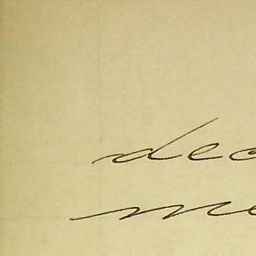 dec
me